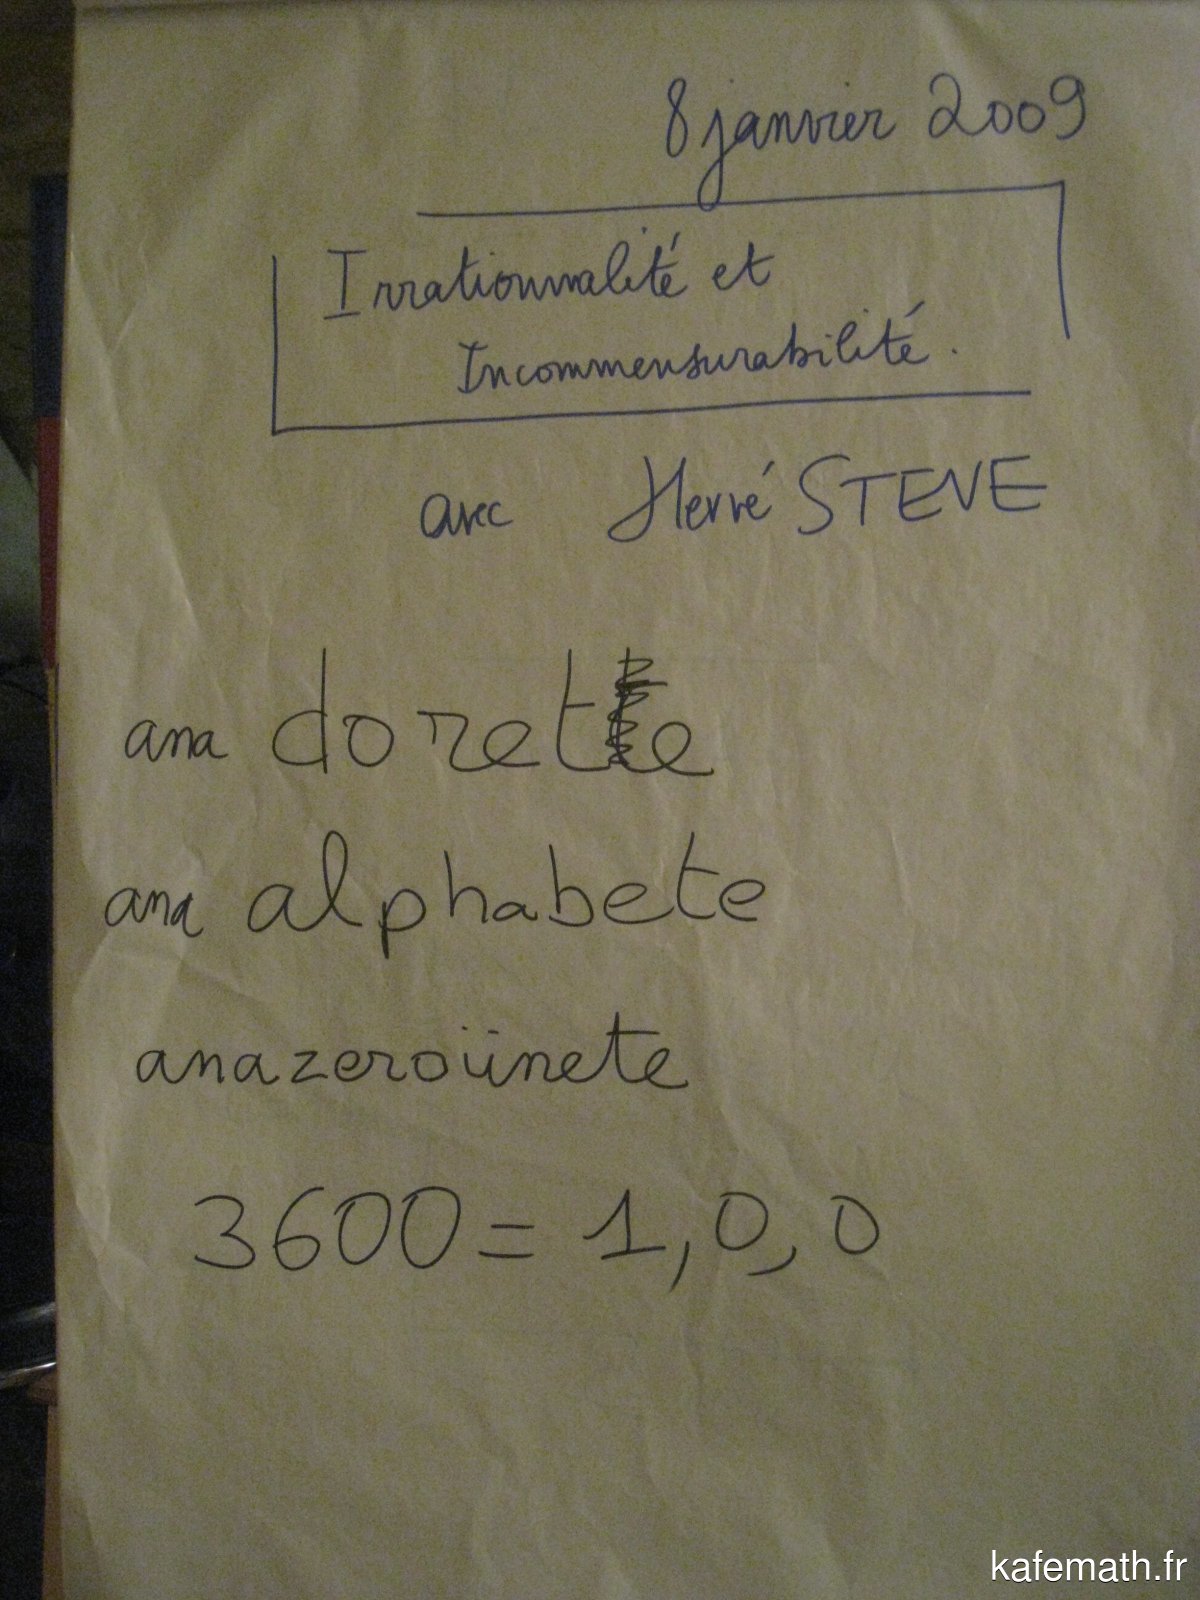 8 janvier 2009
Irrationnalité et
Incommensurabilité.
avec Hervé STEVE
ana dorete
ana alphabete
anazeroünete
3600 = 1,0,0
kafemath.fr